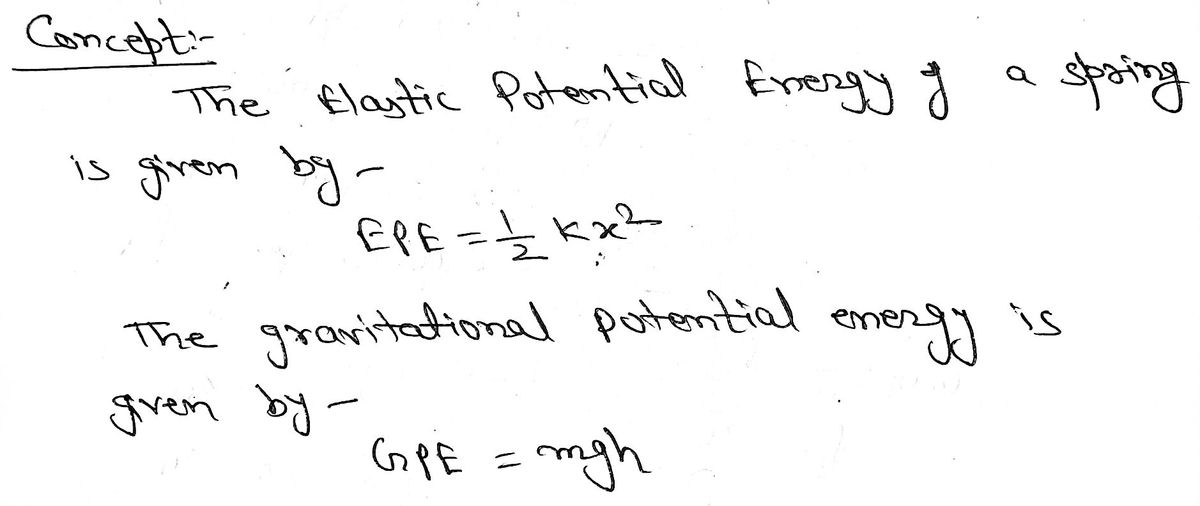 Concept:-
The Elastic Potential Energy of a spring
is given by -
EPE = 1/2 Kx²
The gravitational potential energy is
given by -
GPE = mgh